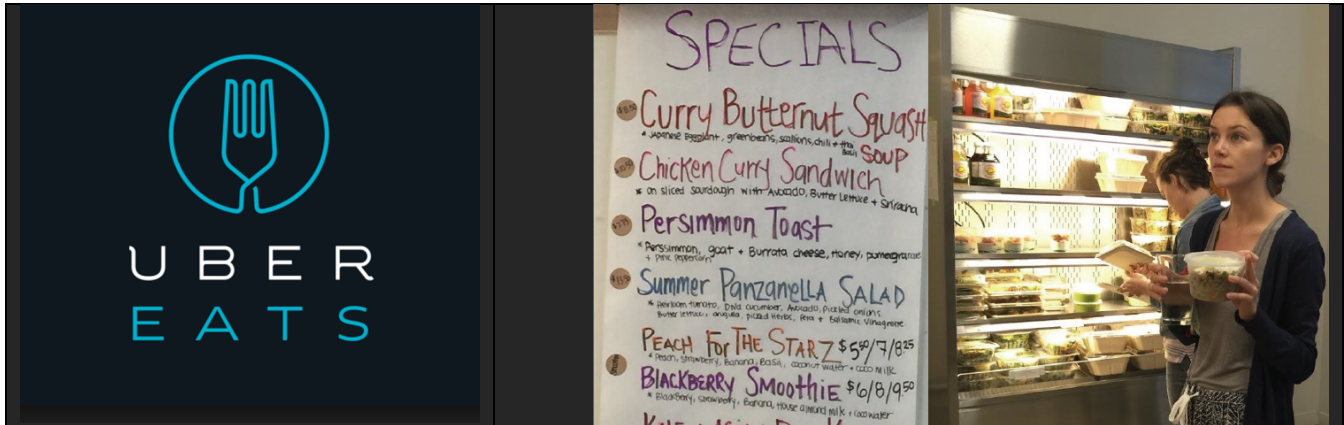 UBER
EATS
SPECIALS
Curry Butternut Squash
* Japanese Eggplant, greenbeans, scallions, chili + thai
basil
SOUP
Chicken Curry Sandwich
* on sliced sourdough with Avocado, Butter Lettuce + Sriracha
Persimmon Toast
* Perssimmon, goat + Burrata cheese, Honey, pomengranate
+ Pink Peppercorn
Summer Panzanella SALAD
* Heirloom tomato, cucumber, Avocado, pickled onions,
Butter lettuce, arugula, picked Herbs, Feta + Balsamic Vinagrette
PEACH FOR THE STARZ $5.50/7/8.25
* Peach, strawberry, Banana, Basil, coconut water + coco milk
BLACKBERRY SMOOTHIE $6/8/9.50
* BlackBerry, strawberry, Banana, House almond milk + coco water